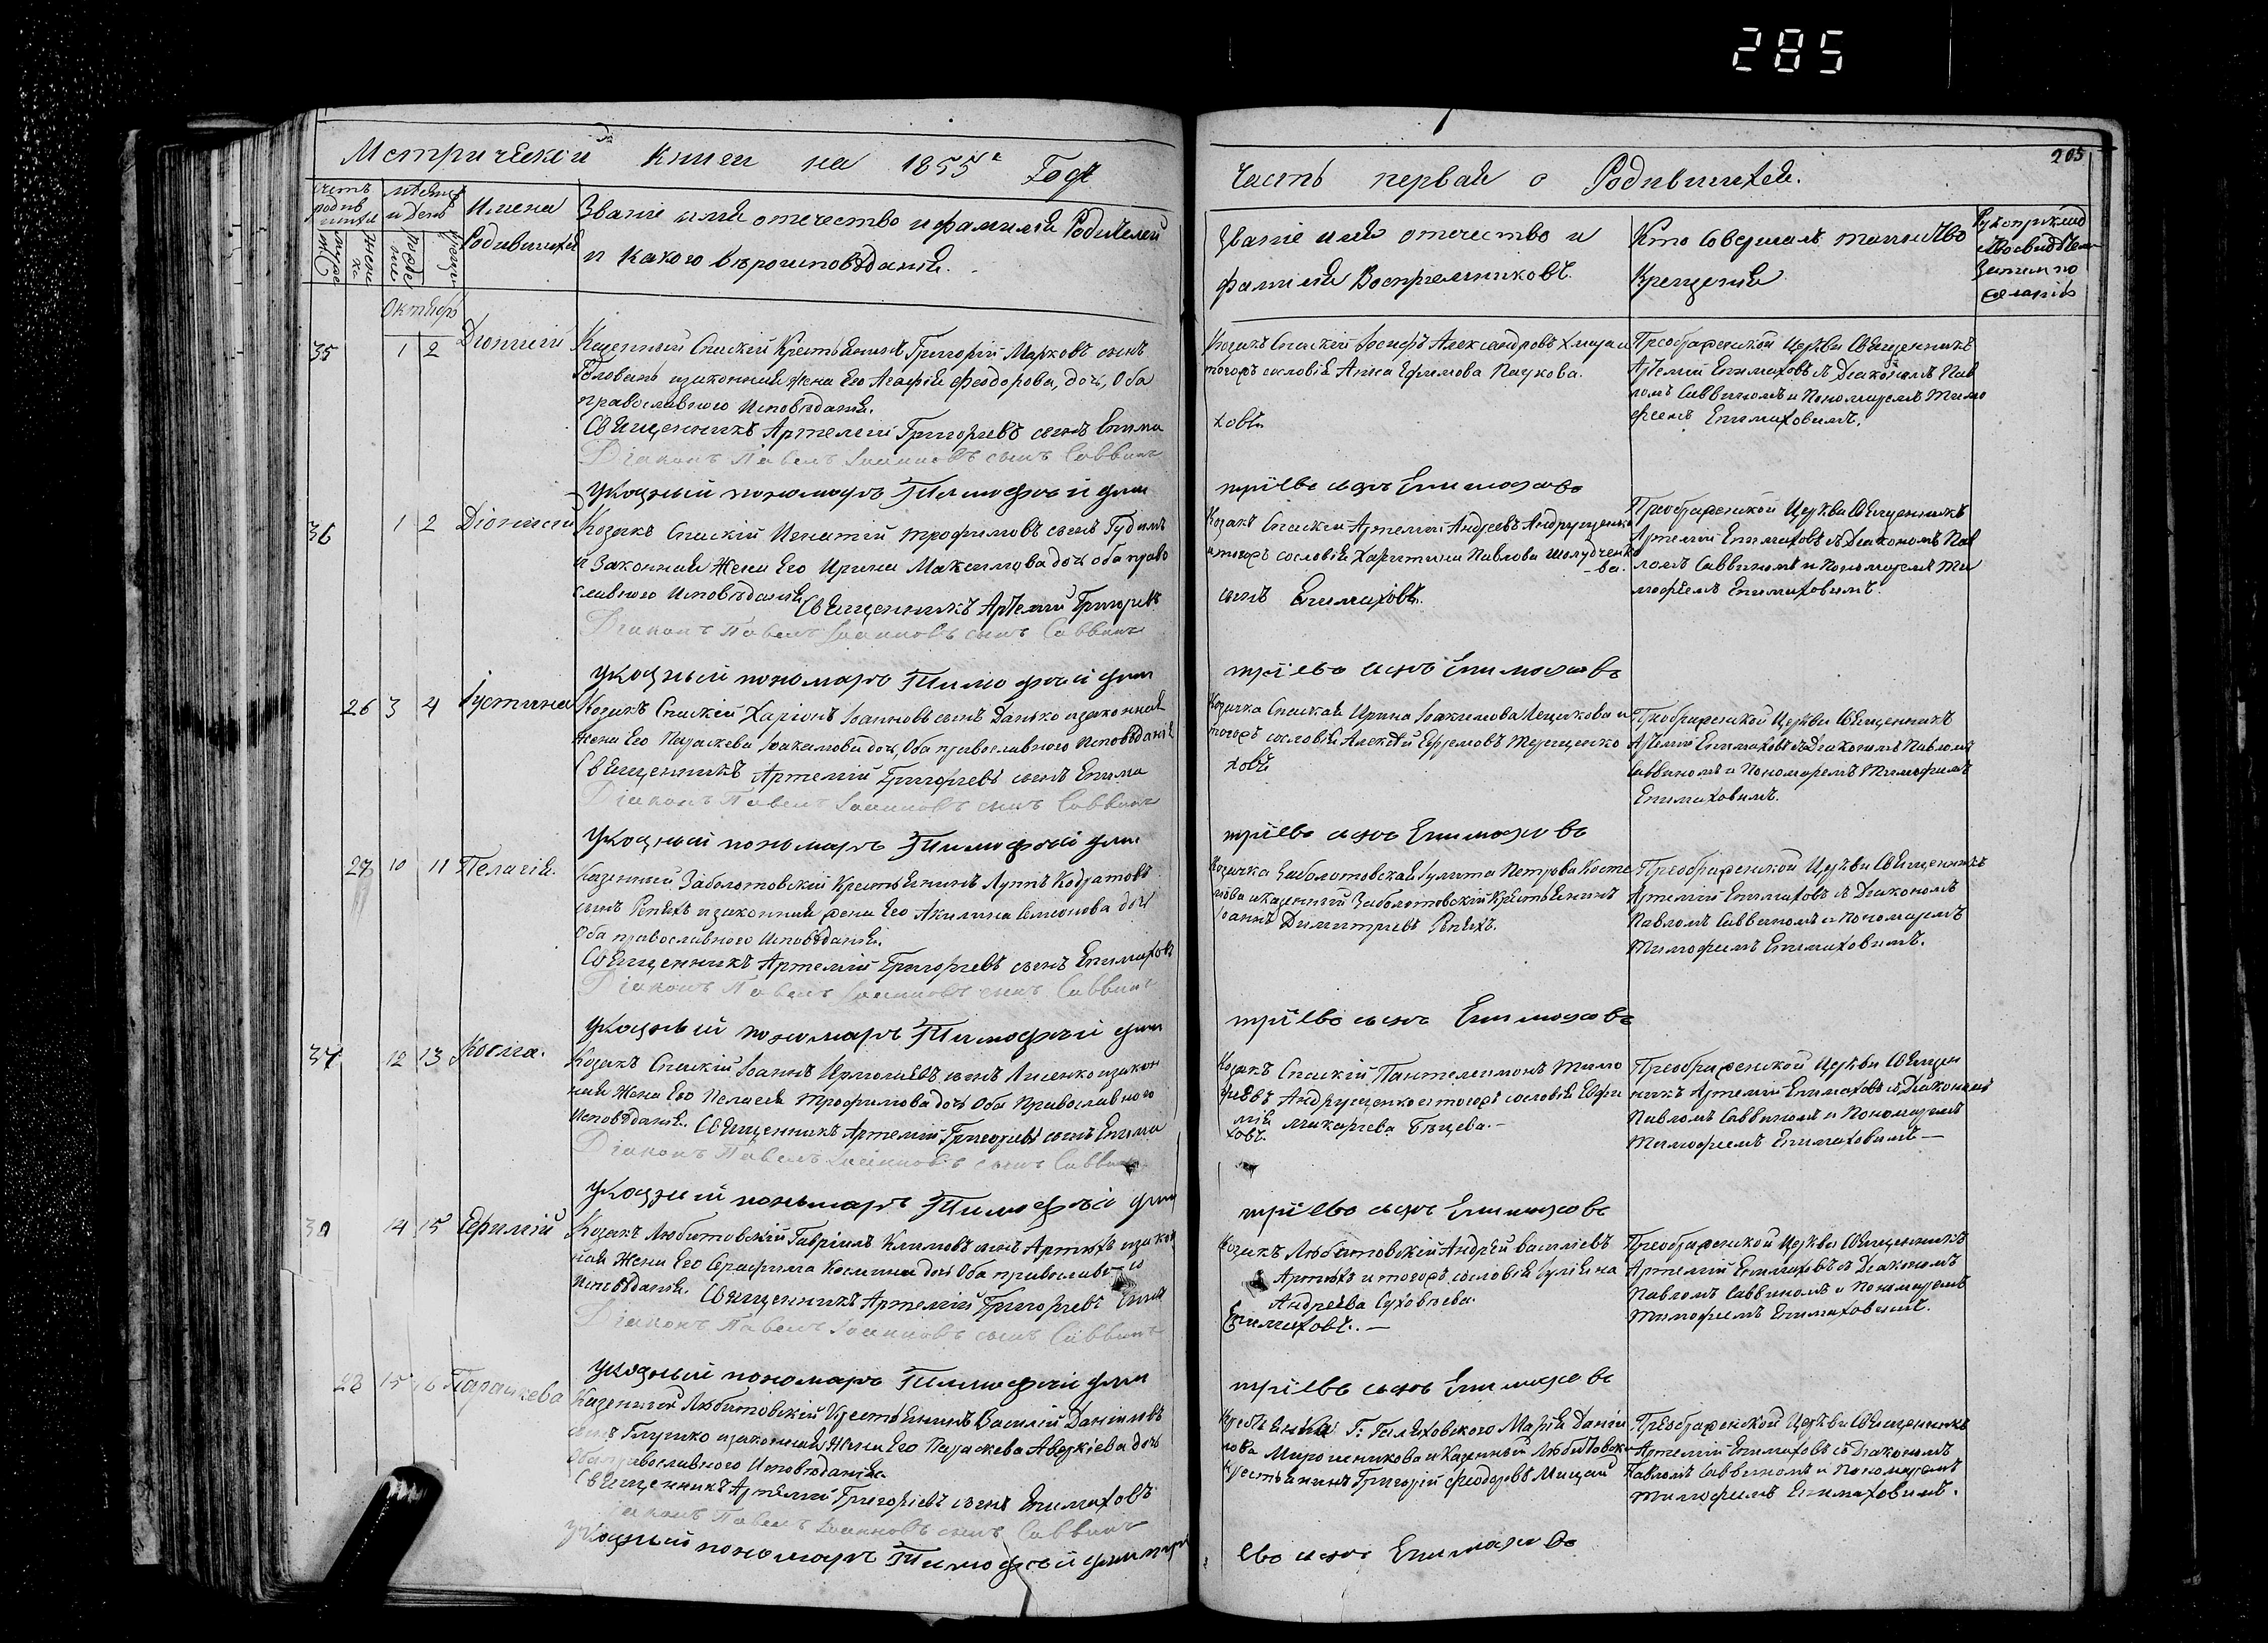 285
Метрической книги на 1855й Годъ
Часть первая о Родившихся.
205
счетъ родившихся
мужеска
женска
Мѣсяцъ и День
рожденія
крещенія
Имена Родившихся
Званіе имя отечество и фамилія Родителей
и какого вѣроисповѣданія.
Званіе имя отечество и
фамилія Воспріемниковъ.
Кто совершалъ таинство
Крещенія
Октябрь
35 1 2 Діонисій
Казенный Спаскій Крестьянинъ Григорій Марковъ сынъ
Головань и законная жена Его Агафія Феодорова, доч, Оба
православного Исповѣданія.
Священникъ Артемій Григорьевъ сынъ Епима
Діаконъ Павелъ Іоанновъ сынъ Саввинъ
Указный пономарь Тимофѣй Дми
Козакъ Спаскій Іосифъ Александровъ
тогожъ сословія Анна Ефимова Паукова.
ховъ
трієвъ сынъ Епимаховъ
Преображенской Церкви Священникъ
Артемій Епимаховъ съ Діакономъ Пав
ломъ Саввиномъ и Пономаремъ Тимо
феемъ Епимаховимъ.
36 1 2 Діонисій
Козакъ Спаскій Игнатій Трофимовъ сынъ
и Законная Жена Его Ирина Максимова доч оба право
славного Исповѣданія
Священникъ Артемій Григорьев
Діаконъ Павелъ Іоанновъ сынъ Саввинъ
Указный пономарь Тимофѣй Дми
Козакъ Спаскій Артемій Андреевъ Андрущенко
и тогожъ сословія Харитина Павлова Шолудченко
ва.
сынъ Епимаховъ.
трієвъ сынъ Епимаховъ
Преображенской Церкви Священникъ
Артемій Епимаховъ съ Діакономъ Пав
ломъ Саввиномъ и Пономаремъ Ти
мофѣемъ Епимаховимъ.
26 3 4 Іустина
Козакъ Спаскій Іоанновъ сынъ Данько и законная
Жена Его Параскева Іоакимова доч, Оба православного Исповѣданія
Священникъ Артемій Григорьевъ сынъ Епима
Діаконъ Павелъ Іоанновъ сынъ Саввинъ
Указный пономарь Тимофѣй Дми
Козачка Спаская Ирина Іоакимова и
тогожъ сословія Алексѣй Ефремовъ Терещенко
ховъ
трієвъ сынъ Епимаховъ
Преображенской Церкви Священникъ
Артемій Епимаховъ съ Діакономъ Павломъ
Саввиномъ и Пономаремъ Тимофемъ
Епимаховимъ.
27 10 11 Пелагія.
Казенный Заболотовскій Крестьянинъ Луппъ Кодратовъ
сынъ Репяхъ и законная жена Его Акилина Семіонова доч
Оба православного Исповѣданія.
Священникъ Артемій Григорьевъ сынъ Епимаховъ
Діаконъ Павелъ Іоанновъ сынъ Саввинъ
Указный пономарь Тимофѣй Дми
Козачка Заболотовская Іулита Петрова
и казенный Заболотовскій Крестьянинъ
Іоаннъ Димитріевъ Репяхъ.
трієвъ сынъ Епимаховъ
Преображенской Церкви Священникъ
Артемій Епимаховъ съ Діакономъ
Павломъ Саввиномъ и Пономаремъ
Тимофемъ Епимаховимъ.
37 12 13 Косма.
Козакъ Спаскій Іоаннъ сынъ Лисенко и закон
ная Жена Его Пелагея Трофимова доч Оба Православного
Исповѣданія. Священникъ Артемій Григорьевъ сынъ Епима
Діаконъ Павелъ Іоанновъ сынъ Саввинъ
Указный пономарь Тимофѣй Дми
Козакъ Спаскій Пантелеимонъ Тимо
феевъ Андрущенко и тогожъ сословія Евфи
мія Макарьева Бѣцева.
ховъ.
трієвъ сынъ Епимаховъ
Преображенской Церкви Священ
никъ Артемій Епимаховъ съ Діакономъ
Павломъ Саввиномъ и Пономаремъ
Тимофемъ Епимаховимъ
14 15 Ефимій
Козакъ Любитовскій Гавріилъ Климовъ сынъ Артюхъ и закон
ная Жена Его Серафима Космина доч Оба православного
Исповѣданія. Священникъ Артемій Григорьевъ сынъ
Діаконъ Павелъ Іоанновъ сынъ Саввинъ
Указный пономарь Тимофѣй Дми
Козакъ Любитовскій Андрей Василіевъ
Артюхъ и тогожъ сословія Іуліяна
Андреева Суховѣева.
Епимаховъ.
трієвъ сынъ Епимаховъ
Преображенской Церкви Священникъ
Артемій Епимаховъ съ Діакономъ
Павломъ Саввиномъ и Пономаремъ
Тимофемъ Епимаховимъ.
28 15 16 Параскева
Казенный Любитовскій Крестьянинъ Василій Даніиловъ
сынъ Глушко и законная Жена Его Параскева Авдкіева доч
Оба православного Исповѣданія.
Священникъ Артемій Григоріевъ сынъ Епимаховъ
Діаконъ Павелъ Іоанновъ сынъ Саввинъ
Указный пономарь Тимофѣй Дмитрі
Марія Даніи
лова Мирошникова и Казенный Любитовскій
Крестьянинъ Григорій Феодоровъ Мицай
евъ сынъ Епимаховъ
Преображенской Церкви Священникъ
Артемій Епимаховъ съ Діакономъ
Павломъ Саввиномъ и Пономаремъ
Тимофемъ Епимаховимъ.